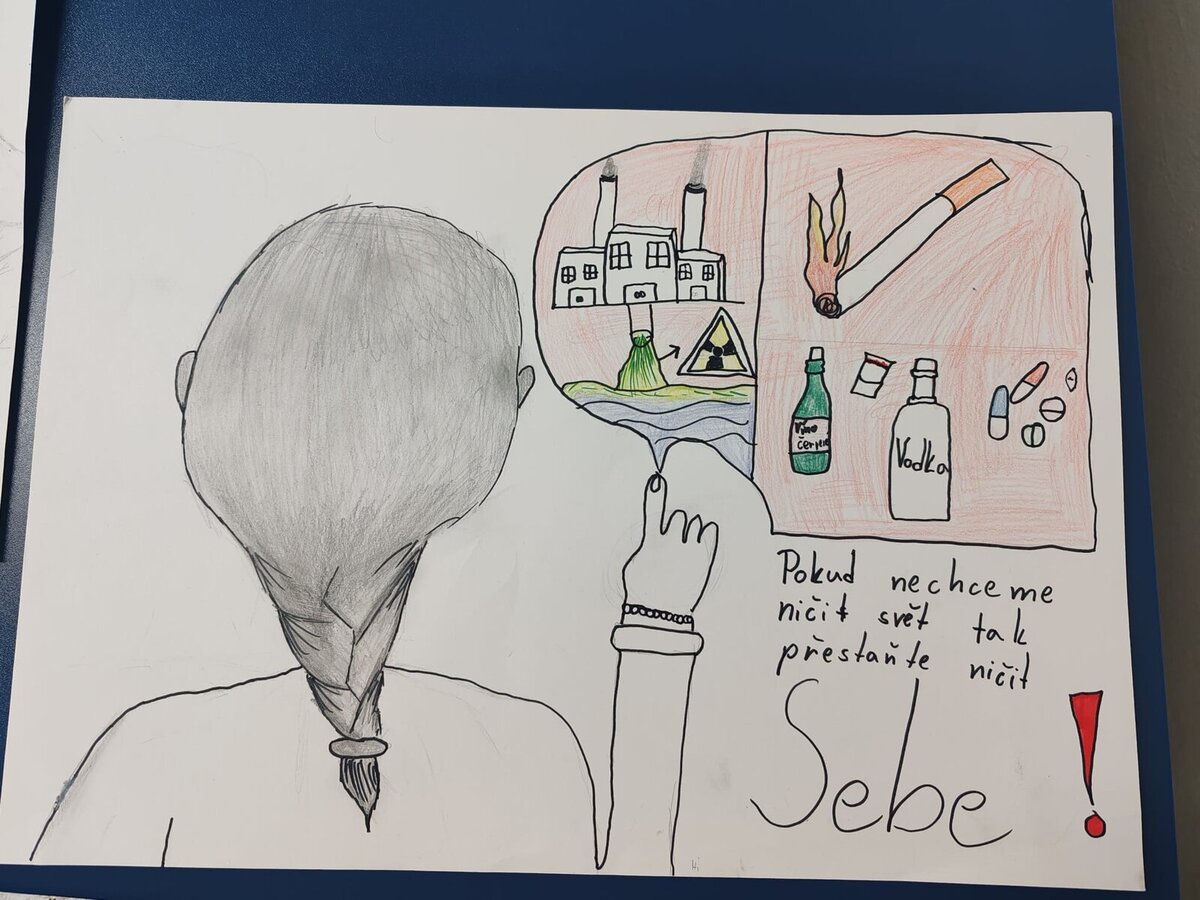 Víno
Vodka
Pokud nechceme
ničit svět tak
přestaňte ničit
Sebe !